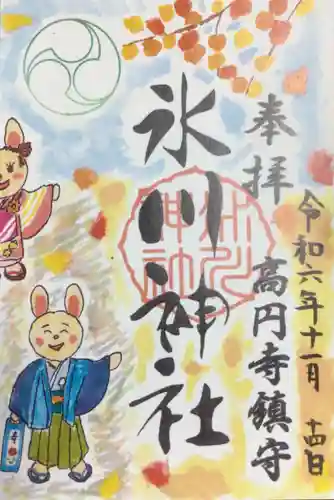 奉拝
令和六年十一月十四日
高円寺鎮守
氷川神社